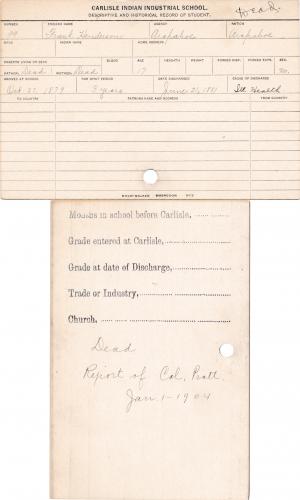 CARLISLE INDIAN INDUSTRIAL SCHOOL.
Dead.
DESCRIPTIVE AND HISTORICAL RECORD OF STUDENT.
NUMBER ENGLISH NAME AGENCY NATION
Frank Henderson Arapahoe Arapahoe
BAND INDIAN NAME HOME ADDRESS
PARENTS LIVING OR DEAD BLOOD AGE HEIGHT WEIGHT FORCED INSP. FORCED EXPR. SEX.
FATHER, Dead MOTHER, Dead 17 M.
ARRIVED AT SCHOOL FOR WHAT PERIOD DATE DISCHARGED CAUSE OF DISCHARGE
Oct. 27, 1879 3 years June 21, 1881 Ill Health
TO COUNTRY PATRONS NAME AND ADDRESS FROM COUNTRY
Months in school before Carlisle,
Grade entered at Carlisle,
Grade at date of Discharge,
Trade or Industry,
Church.
Dead
Report of Col. Pratt.
Jan. 1-1904